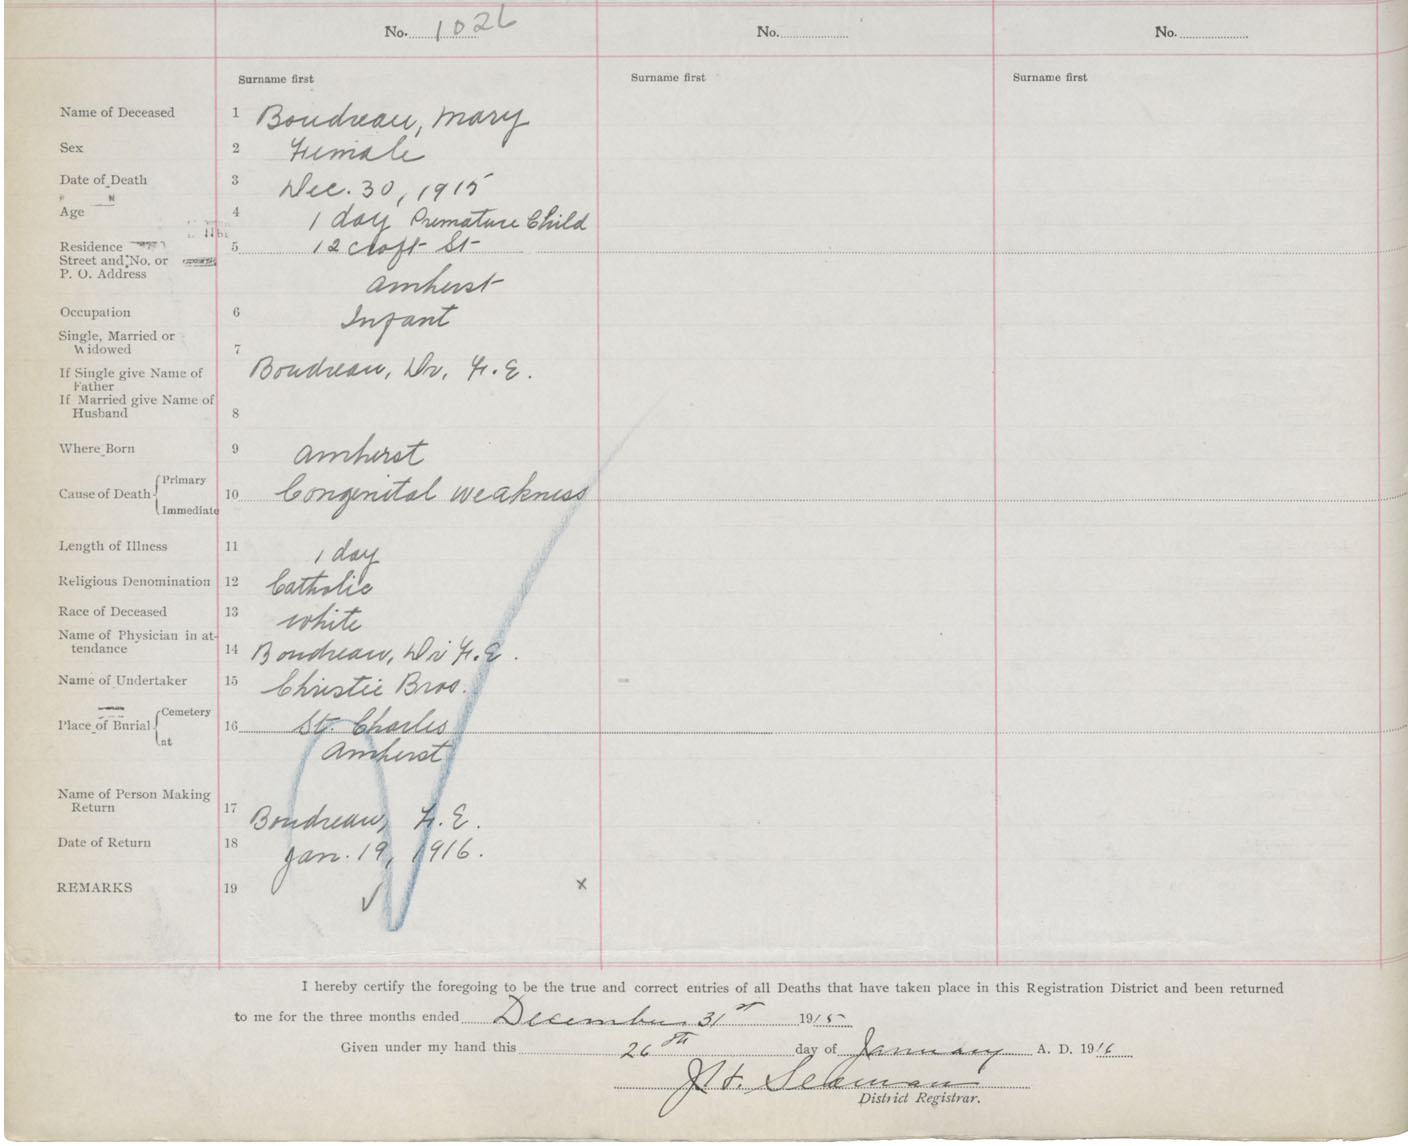 No. 1026 No. No.
Surname first Surname first Surname first
Name of Deceased 1 Boudreau, Mary
Sex 2 Female
Date of Death 3 Dec. 30, 1915
Age 4 1 day Premature Child
Residence 5 12 Croft St
Street and No. or
P. O. Address Amherst
Occupation 6 Infant
Single, Married or
Widowed 7
If Single give Name of Boudreau, Dr. F. E.
Father
If Married give Name of
Husband 8
Where Born 9 Amherst
Cause of Death Primary 10 Congenital weakness
Immediate
Length of Illness 11 1 day
Religious Denomination 12 Catholic
Race of Deceased 13 white
Name of Physician in at-
tendance 14 Boudreau, Dr F. E.
Name of Undertaker 15 Christie Bros.
Place of Burial Cemetery 16 St. Charles
at Amherst
Name of Person Making
Return 17 Boudreau, F. E.
Date of Return 18 Jan. 19, 1916.
REMARKS 19 ✓ x
I hereby certify the foregoing to be the true and correct entries of all Deaths that have taken place in this Registration District and been returned
to me for the three months ended December 31st 1915
Given under my hand this 26th day of January A. D. 1916
Seaman
District Registrar.